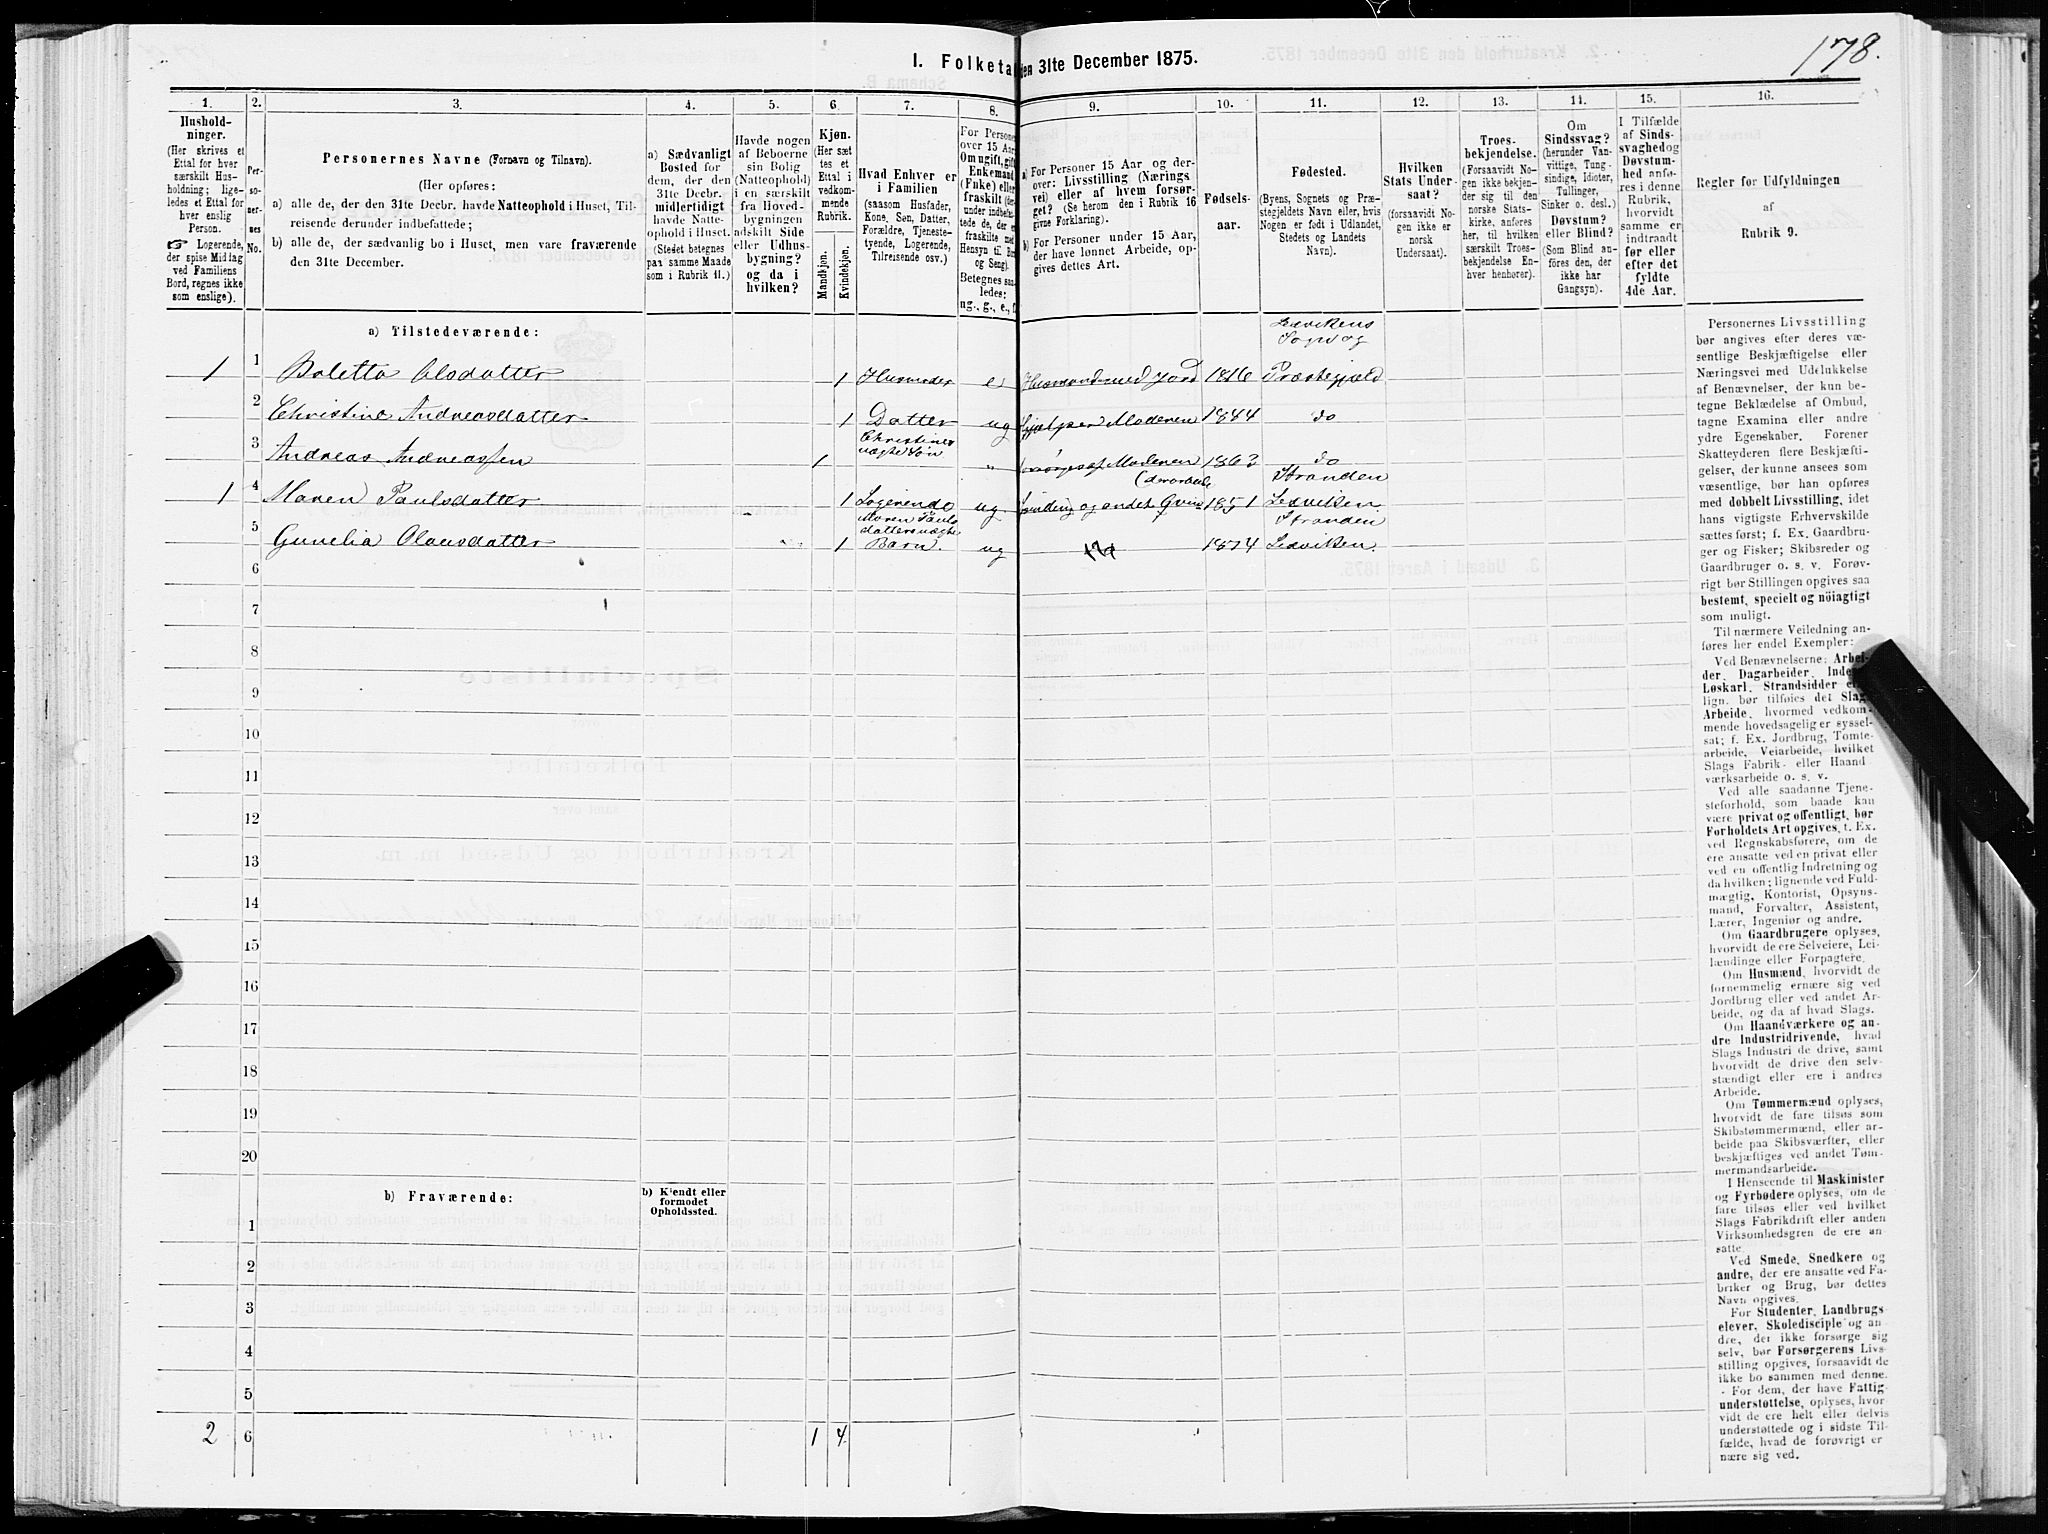 178.
I. Folketa den 31te December 1875.
1. 2. 3. 4. 5. 6. 7. 8. 9. 10. 11. 12. 13. 14. 15. 16.
Hushold-
ninger.
(Her skrives et
Ettal for hver
særskilt Hus-
holdning; lige-
ledes et Ettal for
hver enslig
Person.
☞ Logerende,
der spise Middag
ved Familiens
Bord, regnes ikke
som enslige).
Per-
so-
ner-
nes
No.
Personernes Navne (Fornavn og Tilnavn).
(Her opføres:
a) alle de, der den 31te Decbr. havde Natteophold i Huset, Til-
reisende derunder indbefattede;
b) alle de, der sædvanlig bo i Huset, men vare fraværende
den 31te December.
a) Sædvanligt
Bosted for
dem, der den
31te Decbr.
midlertidigt
havde Natte-
ophold i Huset.
(Stedet betegnes
paa samme Maade
som i Rubrik 11.)
Havde nogen
af Beboerne
sin Bolig
(Natteophold)
i en særskilt
fra Hoved-
bygningen
adskilt Side
eller Udhus-
bygning?
og da i
hvilken?
Kjøn.
(Her sæt
tes et
Ettal i
vedkom-
mende
Rubrik.
Mandkjøn.
Kvindekjøn.
Hvad Enhver er
i Familien
(saasom Husfader,
Kone, Søn, Datter,
Forældre, Tjeneste-
tyende, Logerende,
Tilreisende osv.)
For Persone
over 15 Aar
Om ugift, gift
Enkemand
(Enke) eller
fraskilt (der-
under indbefat-
tede de, der ere
fraskilte med
Hensyn til Bord
og Seng).
Betegnes saa-
ledes:
ug., g., e., f
a) For Personer 15 Aar og der-
over: Livsstilling (Nærings
vei) eller af hvem forsør-
get? (Se herom den i Rubrik 16
givne Forklaring).
b) For Personer under 15 Aar,
der have lønnet Arbeide, op-
gives dettes Art.
Fødsels-
aar.
Fødested.
(Byens, Sognets og Præ-
stegjeldets Navn eller, hvis
Nogen er født i Udlandet,
Stedets og Landets
Navn).
Hvilken
Stats Under-
saat?
(forsaavidt No-
gen ikke er
norsk
Undersaat).
Troes-
bekjendelse.
(Forsaavidt No-
gen ikke bekjen-
der sig til den
norske Stats-
kirke, anføres
her, til hvilken
særskilt Troes-
bekjendelse En-
hver henhører).
Om
Sindssvag?
(herunder Van-
vittige, Tung-
sindige, Idioter,
Tullinger,
Sinker o. desl.)
Døvstum?
eller Blind?
(Som Blind an-
føres den, der
ikke har
Gangsyn).
I Tilfælde
af Sinds-
svaghed og
Døvstum-
hed anfø-
res i denne
Rubrik,
hvorvidt
samme er
indtraadt
før eller
efter det
fyldte
4de Aar.
Regler for Udfyldningen
af
Rubrik 9.
a) Tilstedeværende:
Ledvikens
Sogn og
1 1 Boletta Olsdatter 1 Husmoder e Husmand med Jord 1816 Præstegjæld
2 Christine Andreasdatter 1 Datter ug Hjælper Moderen 1844 do
Christines
3 Andreas Andreassen 1 uægte Søn " Forsørges af Moderen 1863 do
Stranden
1 4 Maren Paulsdatter 1 Logerende ug 1851 Ledviken
Maren Pauls
datters uægte
Stranden
5 Gunelia Olausdatter 1 Barn. ug 1874 Ledviken.
6
7
8
9
10
11
12
13
14
15
16
17
18
19
20
b) Fraværende:
b) Kjendt eller
formodet
Opholdssted.
1
2
3
4
5
2 6 1 4
Personernes Livsstilling
bør angives efter deres væ-
sentlige Beskjæftigelse eller
Næringsvei med Udelukkelse
af Benævnelser, der kun be-
tegne Beklædelse af Ombud,
tagne Examina eller andre
ydre Egenskaber. Forener
Skatteyderen flere Beskjæfti-
gelser, der kunne ansees som
væsentlige, bør han opføres
med dobbelt Livsstilling, idet
hans vigtigste Erhvervskilde
sættes først; f. Ex. Gaardbru-
ger og Fisker; Skibsreder og
Gaardbruger o. s. v. Forøv-
rigt bør Stillingen opgives saa
bestemt, specielt og nöiagtigt
som muligt.
Til nærmere Veiledning an-
føres her endel Exempler:
Ved Benævnelserne: Arbei-
der, Dagarbeider, Inder
Løskarl, Strandsidder el
lign. bør tilføies det Slags
Arbeide, hvormed vedkom-
mende hovedsagelig er syssel-
sat; f. Ex. Jordbrug, Tomte-
arbeide, Veiarbeide, hvilket
Slags Fabrik- eller Haand
værksarbeide o. s. v.
Ved alle saadanne Tjene-
steforhold, som baade kan
være privat og offentligt, bør
Forholdets Art opgives, t. Ex.
ved Regnskabsførere, om de
ere ansatte ved en privat eller
ved en offentlig Indretning og
da hvilken; lignende ved Fuld-
mægtig, Kontorist, Opsyns-
mand, Forvalter, Assistent,
Lærer, Ingeniør og andre.
Om Gaardbrugere oplyses,
hvorvidt de ere Selveiere, Lei-
lændinge eller Forpagtere.
Om Husmænd, hvorvidt de
fornemmelig ernære sig ved
Jordbrug eller ved andet Ar-
beide, og da af hvad Slags.
Om Haandværkere og an-
dre Industridrivende, hvad
Slags Industri de drive, samt
hvorvidt de drive den selv-
stændigt eller ere i andres
Arbeide.
Om Tømmermænd oplyses,
hvorvidt de fare tilsøs som
Skibstømmermænd, eller ar-
beide paa Skibsværfter, eller
beskjæftiges ved andet Tøm-
mermandsarbeide.
I Henseende til Maskinister
og Fyrbødere oplyses, om de
fare tilsøs eller ved hvilket
Slags Fabrikdrift eller anden
Virksomhedsgren de ere an-
satte.
Ved Smede, Snedkere og
andre, der ere ansatte ved Fa-
briker og Brug, bør dettes
Navn opgives.
For Studenter, Landbrugs-
elever, Skoledisciple og an-
dre, der ikke forsørge sig
selv, bør Forsørgerens Livs-
stilling opgives, forsaavidt de
ikke bo sammen med denne.
- For dem, der have Fattig-
understøttelse, oplyses, hvor
vidt de ere helt eller delvis
understøttede og i sidste Til-
fælde, hvad de forøvrigt er
nære sig ved.